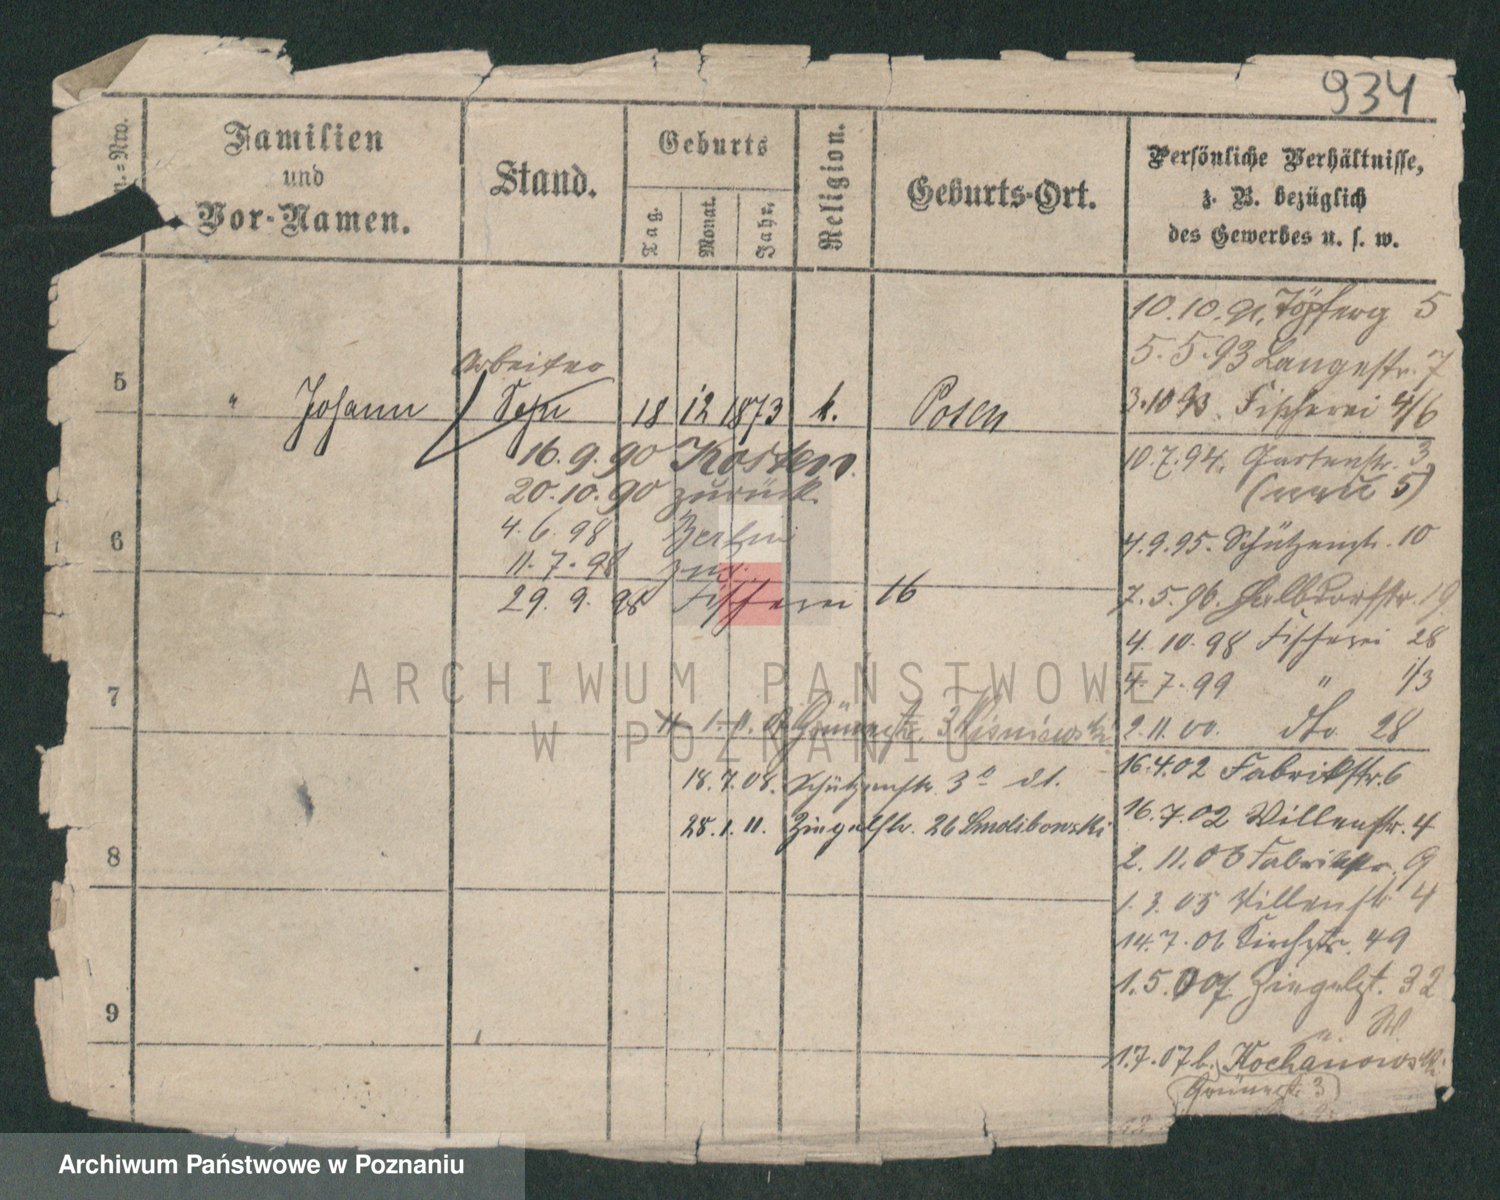 934
Familien
und
Vor-Namen.
Stand.
Geburts
Tag.
Monat.
Jahr.
Religion.
Geburts-Ort.
Persönliche Verhältnisse,
z. B. bezüglich
des Gewerbes u. s. w.
10.10.91. Töpferg 5
5.5.93 Langestr. 7
Arbeiter
5 " Johann Sohn 18 12 1873 k. Posen
3.10.93. Fischerei 4/6
16.9.90 Kosten.
20.10.90 zurück.
10.7.94. Gartenstr. 3
(neu 5)
4.6.98 Berlin
6
11.7.98 zur.
4.9.95. Schützenstr. 10
29.9.98 Fischerei 16
7.5.96. Halbdorfstr. 19
4.10.98 Fischerei 28
4.7.99 " 1/3
7
Grünestr. 3 Wisniewski
2.11.00. dto 28
18.7.08. Schützenstr. 3a
16.4.02 Fabrikstr. 6
28.1.11. Ziegelstr. 26 Smolibowski
16.7.02 Willenstr. 4
8
2.11.03 Fabrikstr. 9
1.3.05 Willenstr 4
14.7.06 Kirchstr. 49
1.5.07. Ziegelst. 32
9
1.7.07 b. Kochanowski
(Grünest. 3)
ARCHIWUM PAŃSTWOWE
W POZNANIU
Archiwum Państwowe w Poznaniu